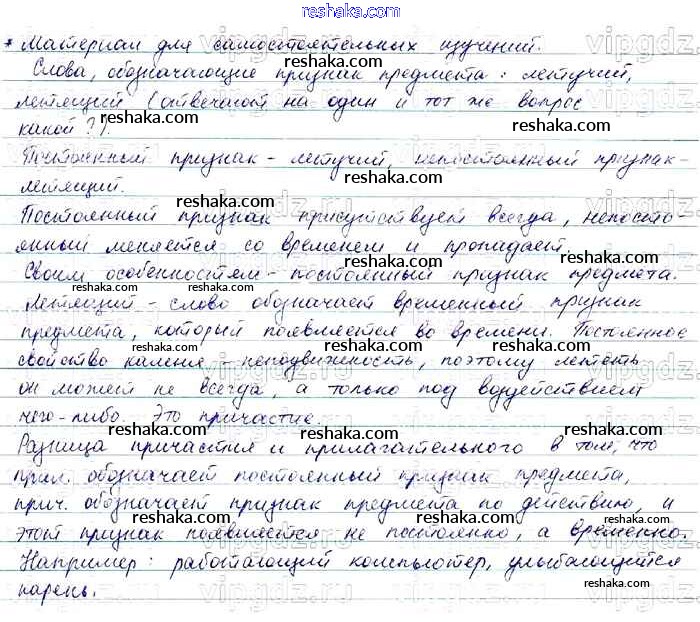 reshaka.com
* Материал для самостоятельных изучений.
Слова, обозначающие признак предмета: летучий,
летящий (отвечают на один и тот же вопрос
какой?).
Постоянный признак - летучий, непостоянный признак -
летящий.
Постоянный признак присутствует всегда, непосто-
янный меняется со временем и пропадает.
Своим особенностям - постоянный признак предмета.
Летящий - слово обозначает временный признак
предмета, который появляется во времени. Постоянное
свойство камня - неподвижность, поэтому летать
он может не всегда, а только под воздействием
чего-либо. Это причастие.
Разница причастия и прилагательного в том, что
прил. обозначает постоянный признак предмета,
прич. обозначает признак предмета по действию, и
этот признак появляется не постоянно, а временно.
Например: работающий компьютер, улыбающийся
парень.